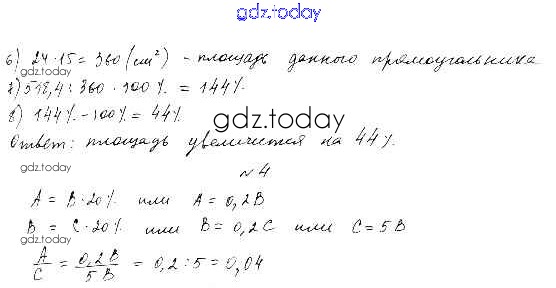 gdz.today
6) 24 · 15 = 360 (см²) - площадь данного прямоугольника
gdz.today
7) 518,4 : 360 · 100 % = 144%.
8) 144% - 100% = 44%.
gdz.today
Ответ: площадь увеличится на 44%.
gdz.today
№ 4
A = B · 20% или A = 0,2 B
B = C · 20% или B = 0,2 C или C = 5 B
gdz.today
A/C = 0,2 B/5 B = 0,2 : 5 = 0,04
gdz.today